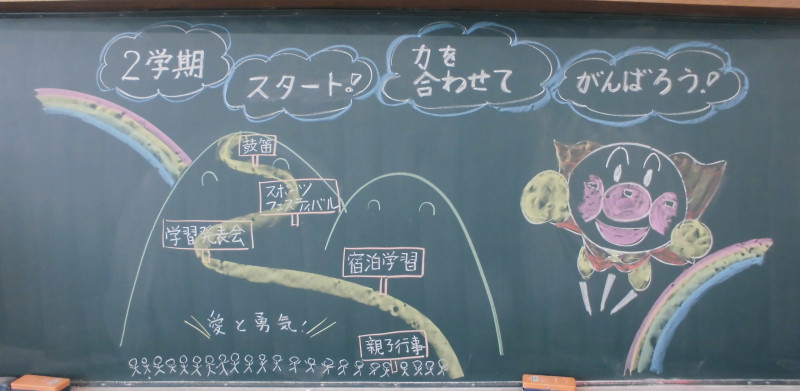 2学期
スタート!
力を
合わせて
がんばろう!
鼓笛
スポーツ
フェスティバル
学習発表会
宿泊学習
愛と勇気!
親子行事